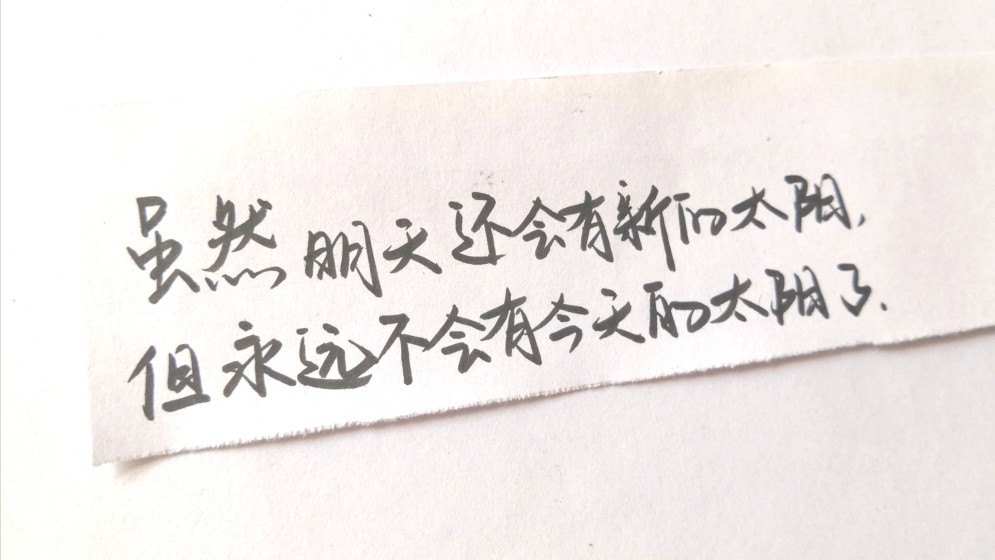 虽然明天还会有新的太阳,
但永远不会有今天的太阳了.